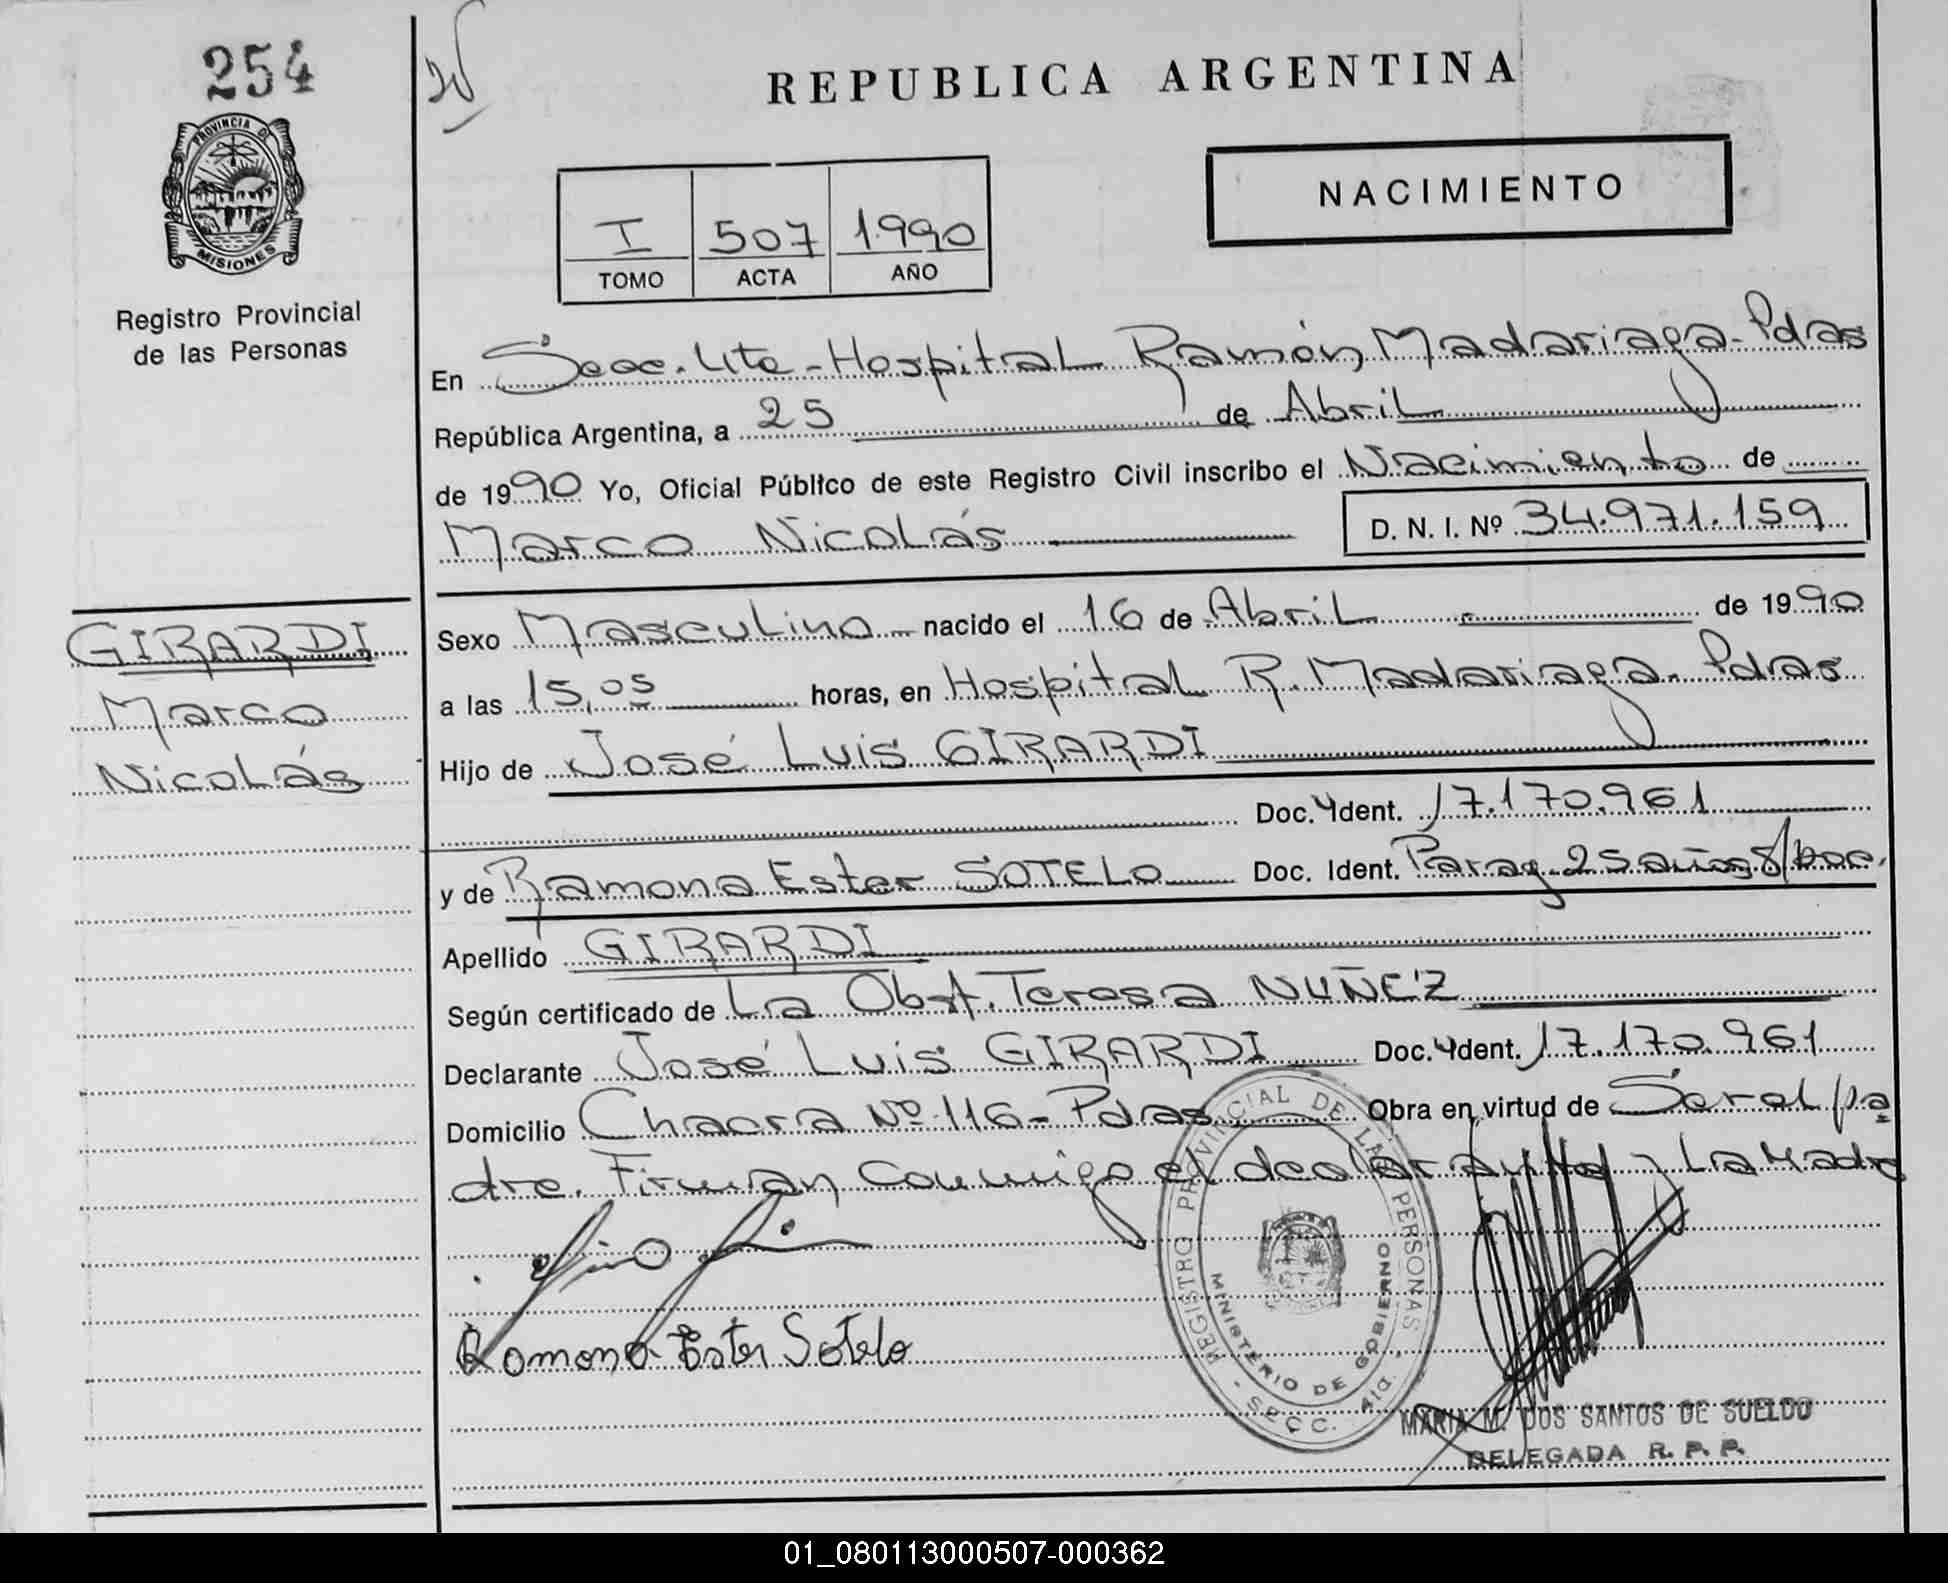 254
PROVINCIA DE
MISIONES
Registro Provincial
de las Personas
REPUBLICA ARGENTINA
NACIMIENTO
I 507 1990
TOMO ACTA AÑO
En Secc. 4ta - Hospital Ramón Madariaga - Pdas
República Argentina, a 25 de Abril
de 1990 Yo, Oficial Público de este Registro Civil inscribo el Nacimiento de
Marco Nicolás D. N. I. Nº 34.971.159
GIRARDI
Marco
Nicolás
Sexo Masculino nacido el 16 de Abril de 1990
a las 15,05 horas, en Hospital R. Madariaga - Pdas
Hijo de José Luis GIRARDI
Doc. Ydent. 17.170.961
y de Ramona Ester SOTELO Doc. Ident. Parag. 25 años S/Doc.
Apellido GIRARDI
Según certificado de La Obst. Teresa NUÑEZ
Declarante José Luis GIRARDI Doc. Ydent. 17.170.961
Domicilio Chacra Nº 116 - Pdas Obra en virtud de Ser el pa
dre. Firman conmigo el declarante y La Madre
Ramona Ester Sotelo
REGISTRO PROVINCIAL DE LAS PERSONAS
MINISTERIO DE GOBIERNO
- SECC. 4ta. -
MARIA M. DOS SANTOS DE SUELDO
DELEGADA R. P. P.
01_080113000507-000362